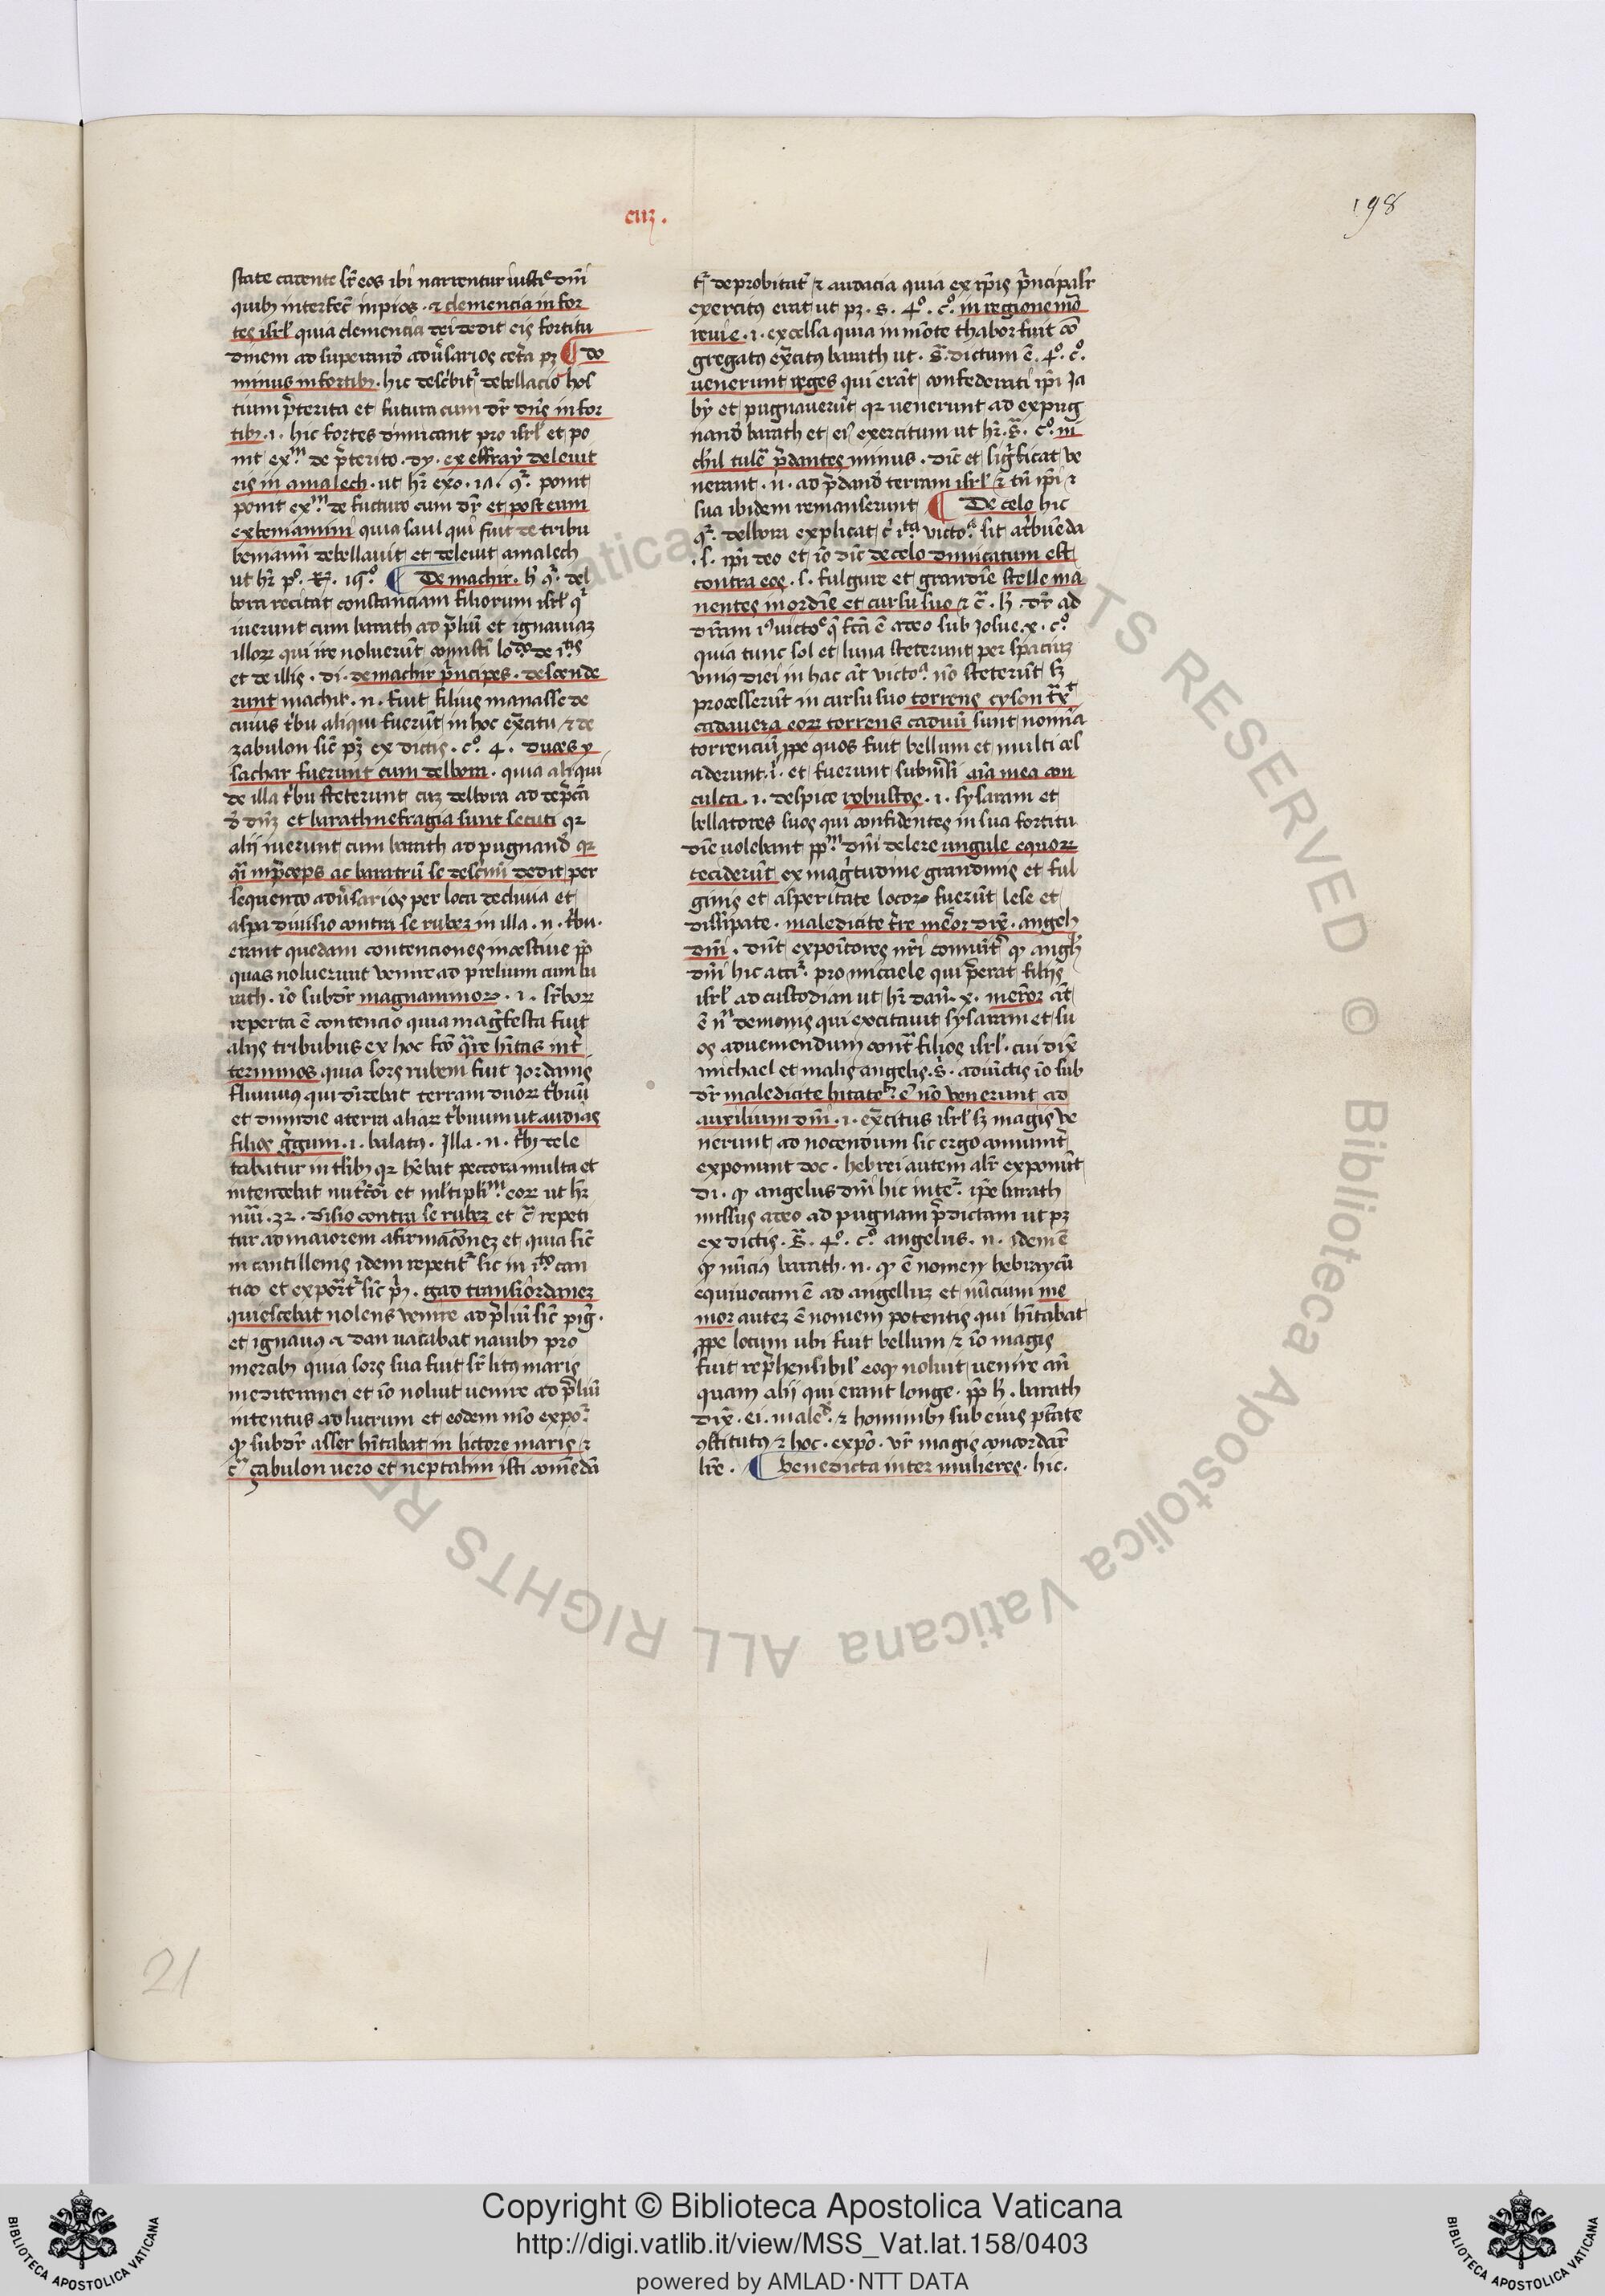 cuȝ.
198
state carente sr̄ eos ibi narrentur iustie dn̄i
quibꝰ interfec̄ inpios · ⁊ clemencia in for
tes isrl̄ quia clemencia dei dedit eis fortitu
dinem ad superand̄ adūsarios cet̄a pꝫ ¶ do
minus in fortibꝫ · hic describit̄ debellacio hos
tium p̄terita et futura cum dr̄ dn̄s in for
tibꝫ .i. hic fortes dimicant pro isrl̄ et po
nit exm de p̄terito · dȳ · ex effraȳ deleuit
eis in amalech · ut hr̄ exo · 17 · q̄ · ponit
ponit exm de futuro cum dr̄ et post eum
ex beniamin quia saul qui fuit de tribu
beniamī debellauit et deleuit amalech
ut hr̄ po · R̄ · 15o ¶ De machir · h̄ q̄ · del
bora recitat constanciam filiorum isrl̄ q̄
iuerunt cum barath ad p̄liū et ignauiaȝ
illoꝝ qui ire noluerūt
et de illis · di · de machir p̄ncipes · descende
runt machir · n · fuit filius manasse de
cuius t̄bu aliqui fuerūt in hoc ex̄citu ⁊ de
zabulon sic̄ pꝫ ex dictis · co · 4 · duces y
sachar fuerunt cum delbora · quia aliqui
de illa t̄bu steterunt cuȝ delbora ad dep̄cā
d̄ dn̄ȝ et barath uestigia sunt secuti qꝛ
alij iuerunt cum barath ad pugnand̄ qꝛ
q̄i in p̄ceps ac baratrū se discrīni dedit per
sequendo adūsarios per loca decliuia et
aspa diuisio contra se rubeȝ in illa · n · t̄bu ·
erant quedam contenciones intestiue pp̄
quas noluerunt venire ad prelium cum ba
rath · iō subdr̄ magnanimoꝝ · i · sr̄boꝝ
reperta ē contencio quia mag̅festa fuit
alijs tribubus ex hoc fc̄o q̄re hītas int̄
terminos quia sors rubem fuit Jordanis
fluuius qui diuidebat terram duoꝝ t̄buū
et dimidie a terra aliaꝝ t̄buum ut audias
filios g̅gum · i · balatꝰ · Illa · n · t̄bꝫ dele
tabatur in
intendebat
nūi · 32 · diīsio contra se rubeȝ et c̄ repeti
tur ad maiorem afirmac̄oneȝ et quia sic̄
in cantillenis idem repetit̄ sic in ito can
tico et exponr̄t sic̄ p̄ꝰ · gad trans iordaneȝ
quiescebat nolens venire ad p̄liū sic̄ pig̅ ·
et ignauꝰ ⁊ dan vacabat nauibꝫ pro
mercibꝫ quia sors sua fuit sr̄ litꝰ maris
mediteranei et iō noluit uenire ad p̄liū
intentus ad lucrum et eodem mō expor̄
qꝫ subdr̄ asser hītabat in lictore maris ⁊
c̄ çabulon uero et neptalim isti com̄edā
t̄ de probitat̄ ⁊ audacia quia ex ip̄is p̄ncipalr̄
exercitus erat ut pꝫ · s · 4o · co · in regione mō
ieuie · i · excelsa quia in mōte thabor fuit cō
gregatꝰ ex̄citꝰ barath ut · s̄ · dictum ē 4o · co ·
uenerunt reges qui erāt confederati ip̄i Ja
bȳ et pugnauerūt qꝛ uenerunt ad expug
nand̄ barath et eiꝰ exercitum ut hr̄ · s̄ · co · ni
chil tulē p̄dantes minus · dic̄ et sig̅ficat ve
nerant · n · ad p̄dand̄ terram isrl̄ ⁊ tn̄ ip̄i ⁊
sua ibidem remanserunt ¶ De celo hic
q̄ · delbora explicat c̄ ita victoa sit at̄buēda
· s · ip̄i deo et iō dic̄ de celo dimicatum est
contra eos · s · fulgure et grandīe stelle ma
nentes in ordīe et cursu suo ⁊ c̄ · h̄ · dr̄ ad
dr̄am
quia tunc sol et luna steterunt per spaciuȝ
vnius diei in hac āt victoa nō steterūt sꝫ
processerūt in cursu suo torrens cyson t̄xt
cadauera eoꝝ torrens caduū sunt nomīa
torrenciū ꝓpe quos fuit bellum et multi cel
ciderunt · ī · et fuerunt subm̄si aīa mea con
culca · i · despice robustos · i · sysaram et
bellatores suos qui confidentes in sua fortitu
dīe uolebant delere ungule equoꝝ
teciderūt ex mag̅tudine grandinis et ful
ginis et asperitate locoꝝ fuerūt lese et
dissipate · maledicite t̄re mēor dix̄ · angelꝰ
dn̄i · dn̄t expoitores nr̄i qꝫ anglꝰ
dn̄i hic acci · pro micaele qui p̄erat filijs
isrl̄ ad custodian ut hr̄ dan̄ · x · mer̄or āt
ē nm demonis qui excitauit sysaram et su
os ad uemendum cont̄ filios isrl̄ · cui dix̄
michael et malis angelis · s̄ · adiūctis iō sub
dr̄ maledicite hītate eꝰ nō venerunt ad
auxilium dn̄i · i · ex̄citus isrl̄ sꝫ magis ve
nerunt ad nocendum sic ergo
exponunt doc · hebrei autem alr̄ exponūt
di · qꝫ angelus dn̄i hic inter̄ · ip̄e barath
missus a deo ad pugnam p̄dictam ut pꝫ
ex dictis · s̄ · 4o · co angelus · n · idem ē
qꝫ nūcius barath · n · qꝫ ē nomen hebraycū
equiuocum ē ad angelluȝ et nūcium me
nior auteȝ ē nomem potentis qui hītabat
ꝓpe locum ubi fuit bellum ⁊ iō magis
fuit rep̄hensibil̄ eoqꝫ noluit uenire an̄
quam alij qui erant longe · pp̄ h̄ · barath
dix̄ · ei · maled̄ · ⁊ hominibꝫ sub eius ptāte
ꝯstitutꝰ ⁊ hoc · expō · vr̄ magis concordar̄
lr̄e · ¶ benedicta inter mulieres · hic ·
21
Copyright © Biblioteca Apostolica Vaticana
http://digi.vatlib.it/view/MSS_Vat.lat.158/0403
powered by AMLAD·NTT DATA
BIBLIOTECA APOSTOLICA VATICANA
BIBLIOTECA APOSTOLICA VATICANA
© Biblioteca Apostolica Vaticana ALL RIGHTS RESERVED